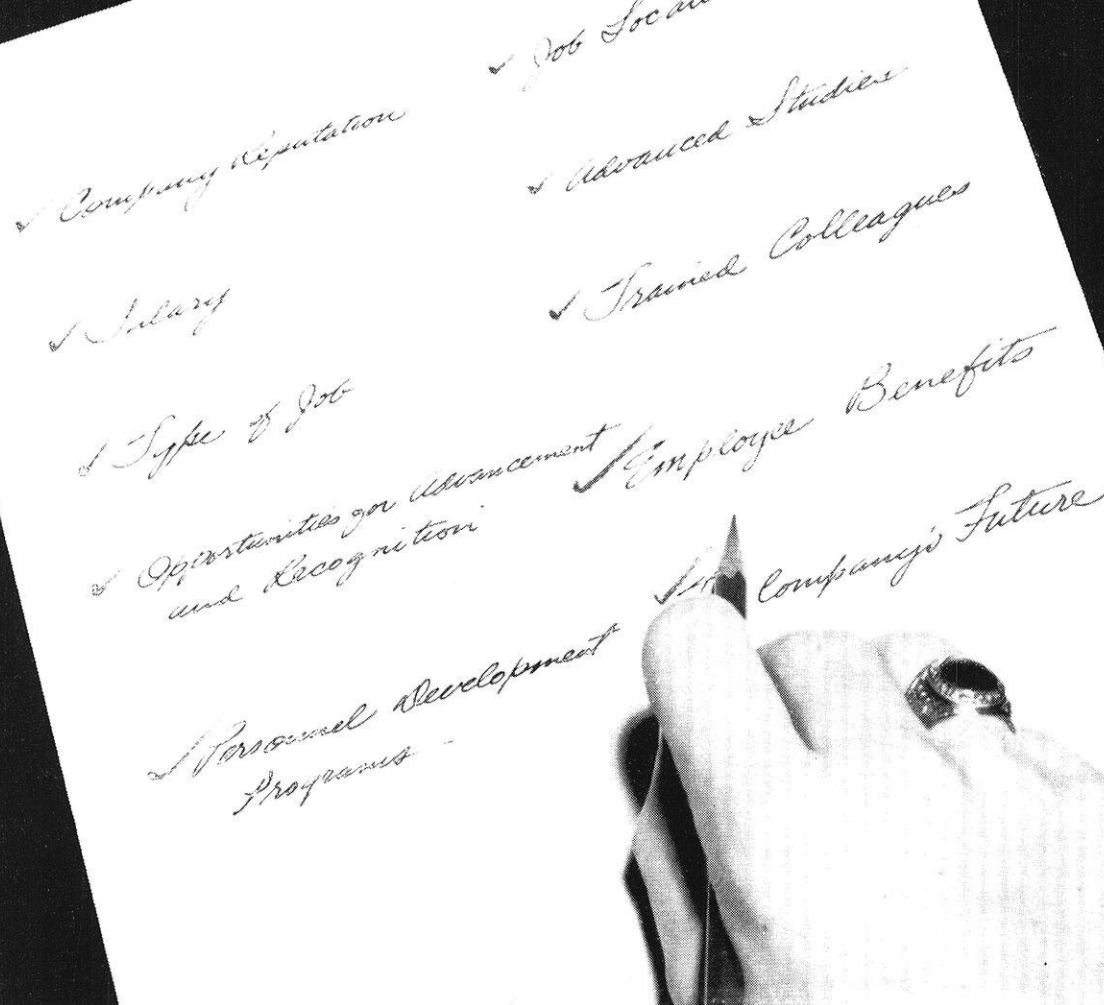 ✓ Company Reputation
✓ Salary
✓ Type of Job
✓ Opportunities for Advancement
and Recognition
✓ Personnel Development
Programs -
✓ Job
✓ Advanced Studies
✓ Trained Colleagues
✓ Employee Benefits
✓ Company's Future